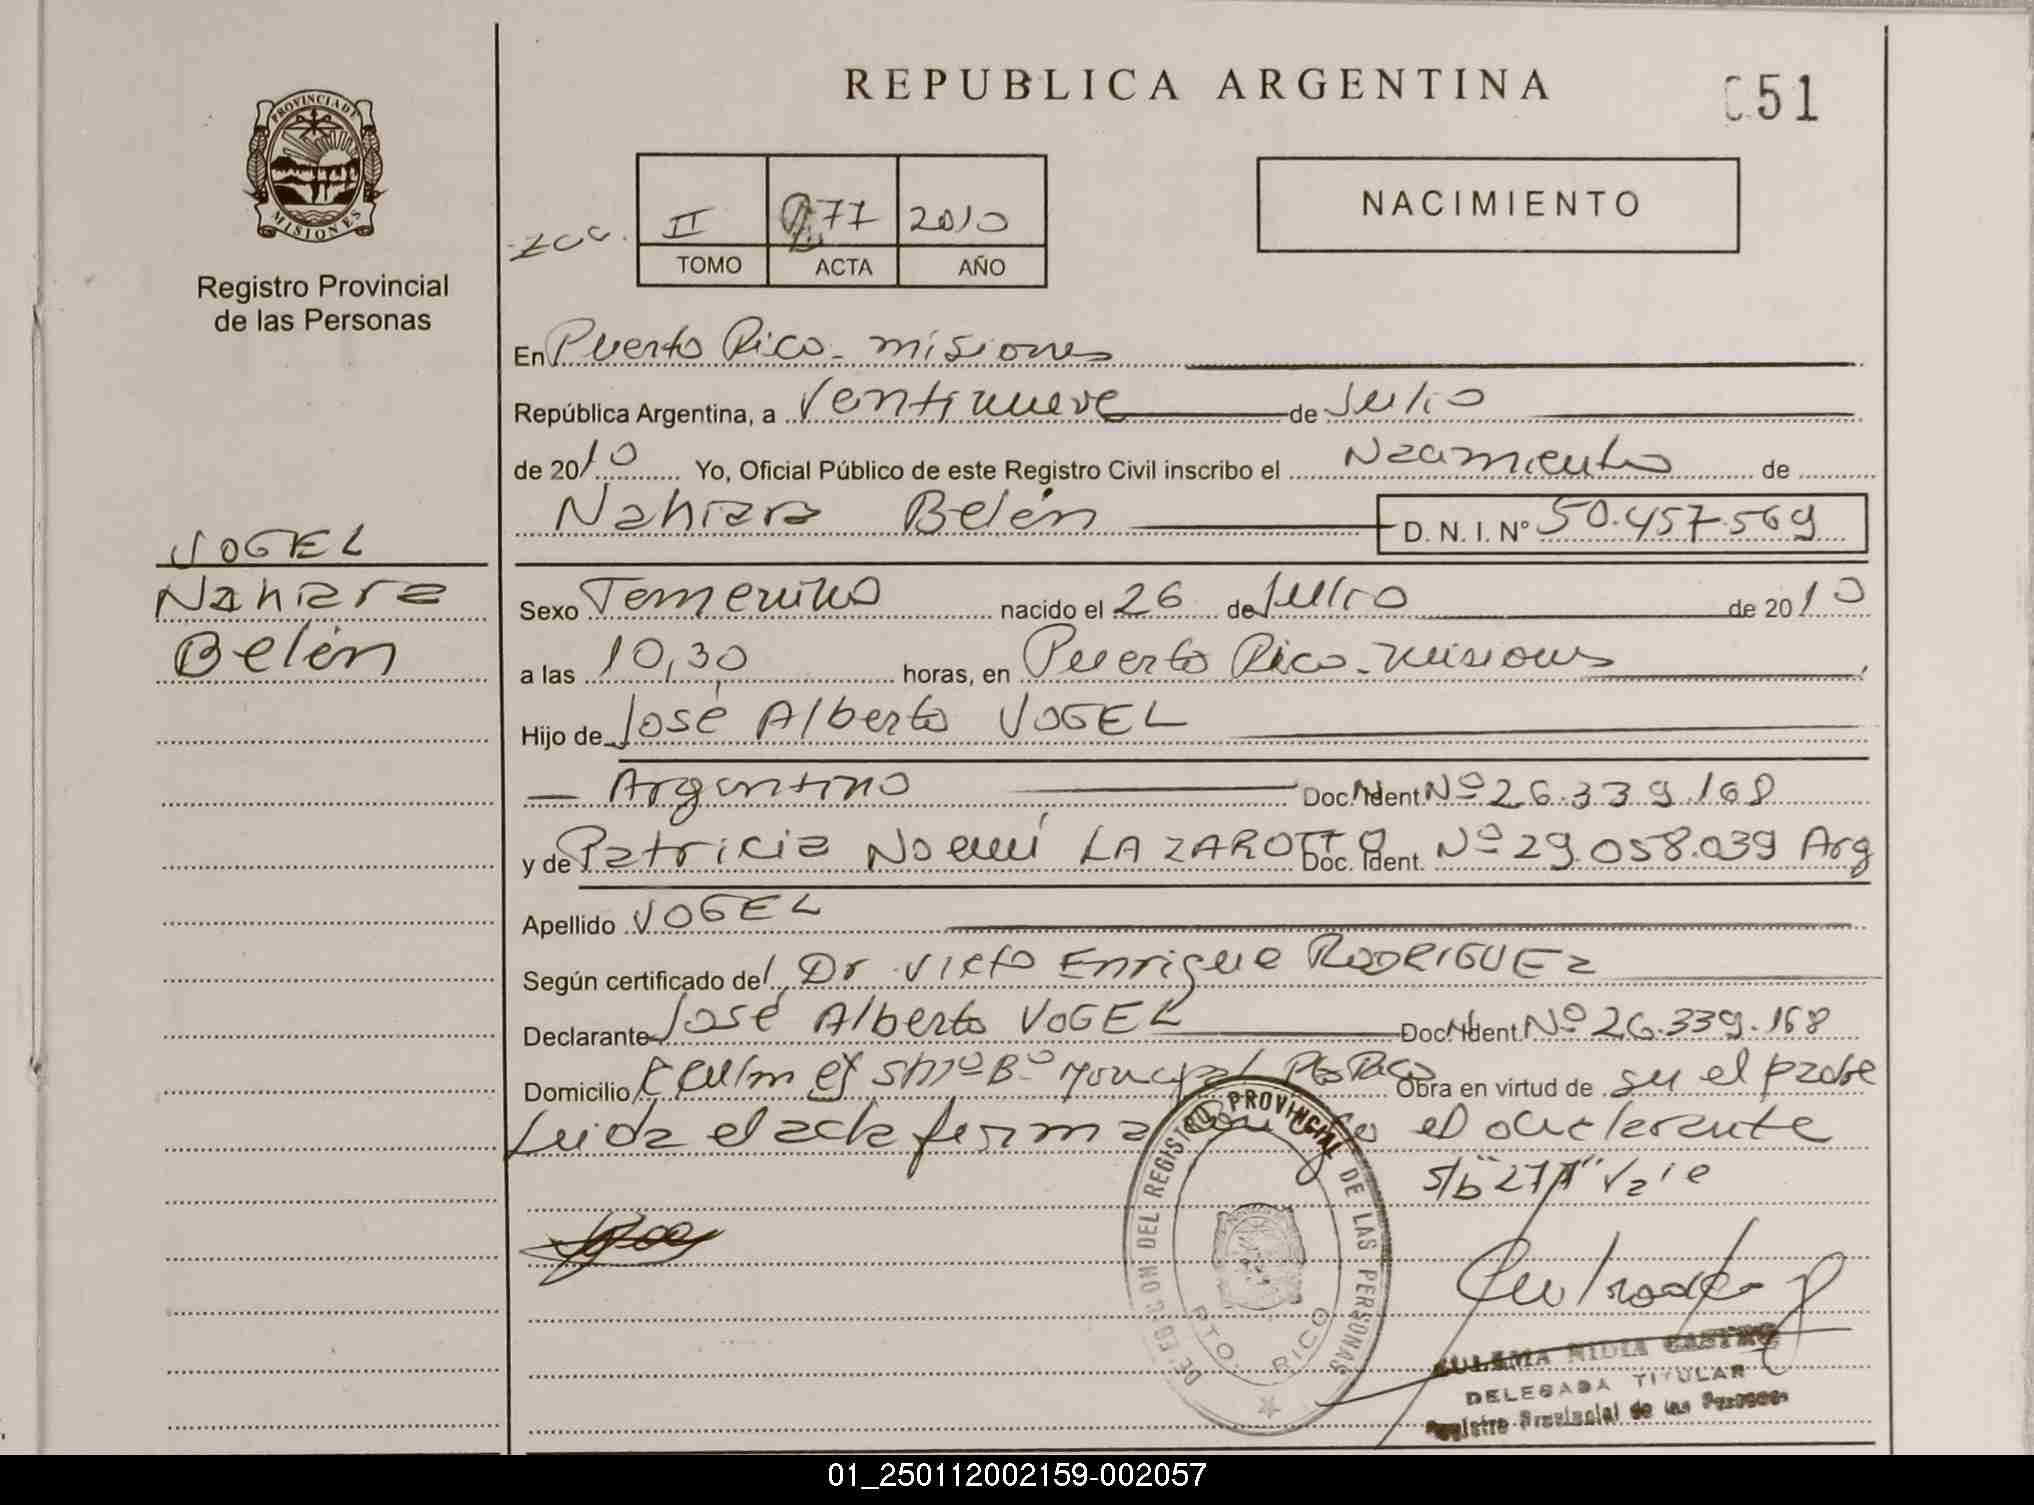 REPUBLICA ARGENTINA
051
PROVINCIA DE MISIONES
Registro Provincial
de las Personas
NACIMIENTO
II 277 2010
TOMO ACTA AÑO
En Puerto Rico - misiones
República Argentina, a Ventinueve de Julio
de 2010 Yo, Oficial Público de este Registro Civil inscribo el Nacimiento de
Nahiara Belén D. N. I. Nº 50.457.569
VOGEL
Nahiara
Belén
Sexo Femenino nacido el 26 de Julio de 2010
a las 10,30 horas, en Puerto Rico - misiones
Hijo de José Alberto VOGEL
Argentino Doc. Ident. Nº 26.339.168
y de Patricia Noemí LAZAROTTO Doc. Ident. Nº 29.058.039 Arg
Apellido VOGEL
Según certificado del Dr. Victo Enrique RODRIGUEZ
Declarante José Alberto VOGEL Doc. Ident. Nº 26.339.168
Domicilio Obra en virtud de su el padre
Leida el acta firma el declarante
DELEGACION DEL REGISTRO PROVINCIAL DE LAS PERSONAS
PTO. RICO
ZULEMA NIDIA CASTRO
DELEGADA TITULAR
Registro Provincial de las Personas
01_250112002159-002057